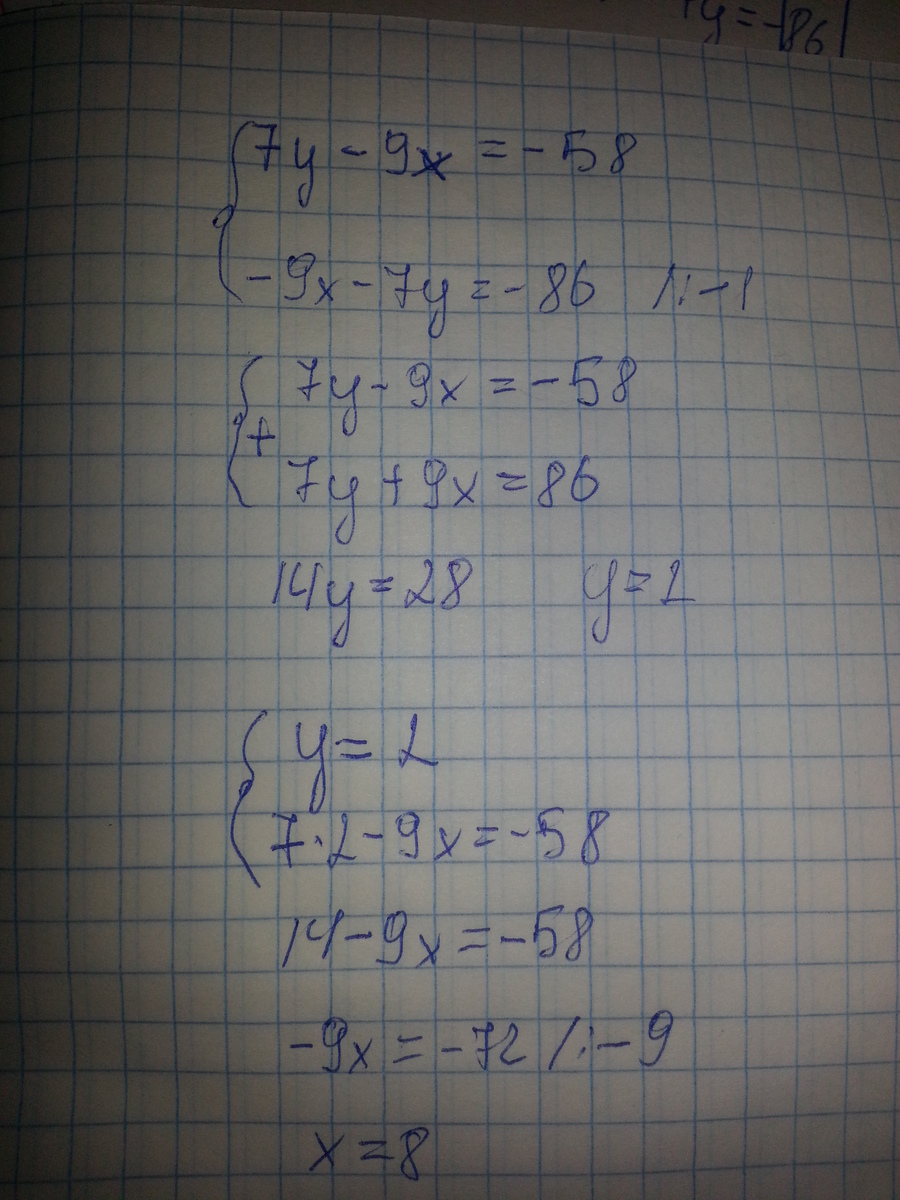 y = -86
7y - 9x = -58
-9x - 7y = -86 /: -1
7y - 9x = -58
+
7y + 9x = 86
14y = 28 y = 2
y = 2
7·2 - 9x = -58
14 - 9x = -58
-9x = -72 /: -9
x = 8